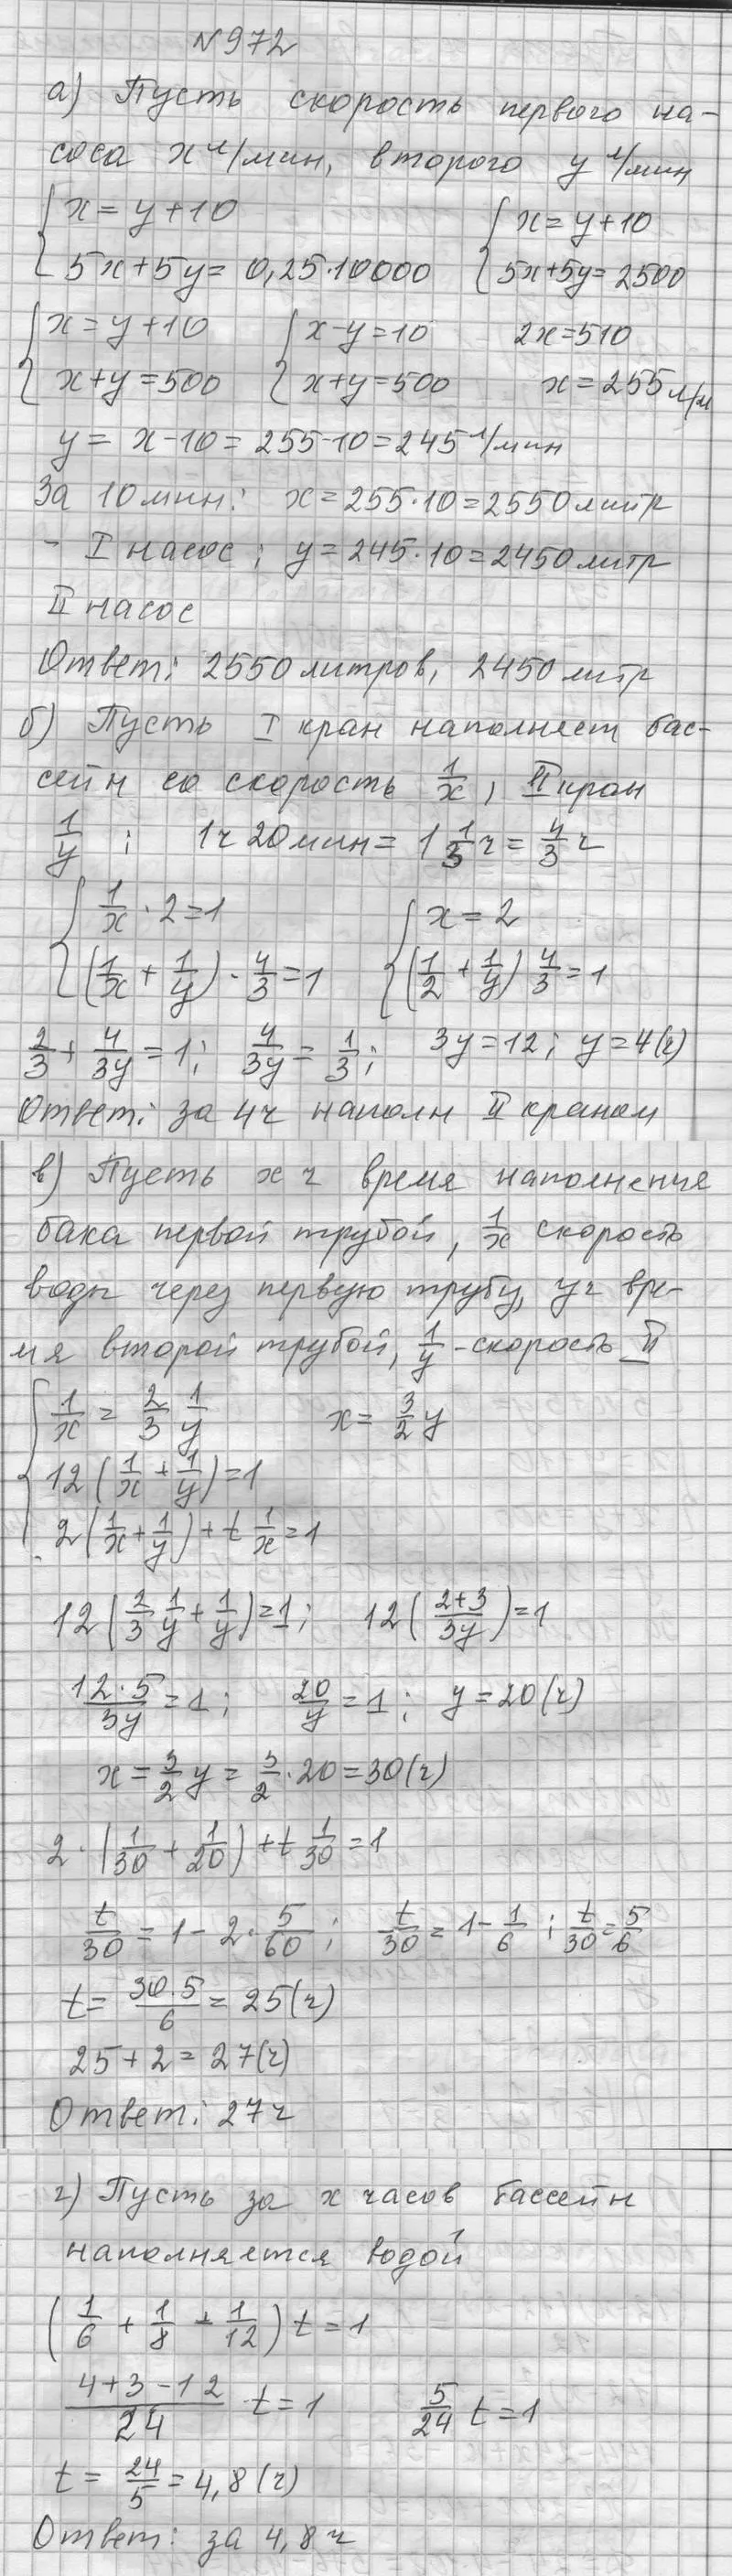 №972
а) Пусть скорость первого на-
соса x л/мин, второго y л/мин
{x = y + 10
5x + 5y = 0,25·10000 {x = y + 10
5x + 5y = 2500
{x = y + 10
x + y = 500 {x - y = 10
x + y = 500 2x = 510
x = 255 л/м
y = x - 10 = 255 - 10 = 245 л/мин
За 10 мин: x = 255·10 = 2550 литр
- I насос; y = 245·10 = 2450 литр
II насос
Ответ: 2550 литров, 2450 литр
б) Пусть I кран наполняет бас-
сейн со скорость 1/x, II кран
1/y ; 1ч 20мин = 1 1/3 ч = 4/3 ч
{1/x · 2 = 1
(1/x + 1/y) · 4/3 = 1 {x = 2
(1/2 + 1/y) 4/3 = 1
2/3 + 4/3y = 1; 4/3y = 1/3; 3y = 12; y = 4(ч)
Ответ: за 4ч наполн II краном
в) Пусть x ч время наполнения
бака первой трубой, 1/x скорость
воды через первую трубу, y ч вре-
мя второй трубой, 1/y - скорость II
{1/x = 2/3 1/y x = 3/2 y
12(1/x + 1/y) = 1
2(1/x + 1/y) + t 1/x = 1
12(2/3 1/y + 1/y) = 1; 12((2+3)/3y) = 1
12·5/3y = 1; 20/y = 1; y = 20(ч)
x = 3/2 y = 3/2 · 20 = 30(ч)
2·(1/30 + 1/20) + t 1/30 = 1
t/30 = 1 - 2·5/60; t/30 = 1 - 1/6; t/30 = 5/6
t = 30·5/6 = 25(ч)
25 + 2 = 27(ч)
Ответ: 27ч
г) Пусть за x часов бассейн
наполняется водой
(1/6 + 1/8 - 1/12) t = 1
(4+3-12)/24 · t = 1 5/24 t = 1
t = 24/5 = 4,8(ч)
Ответ: за 4,8ч